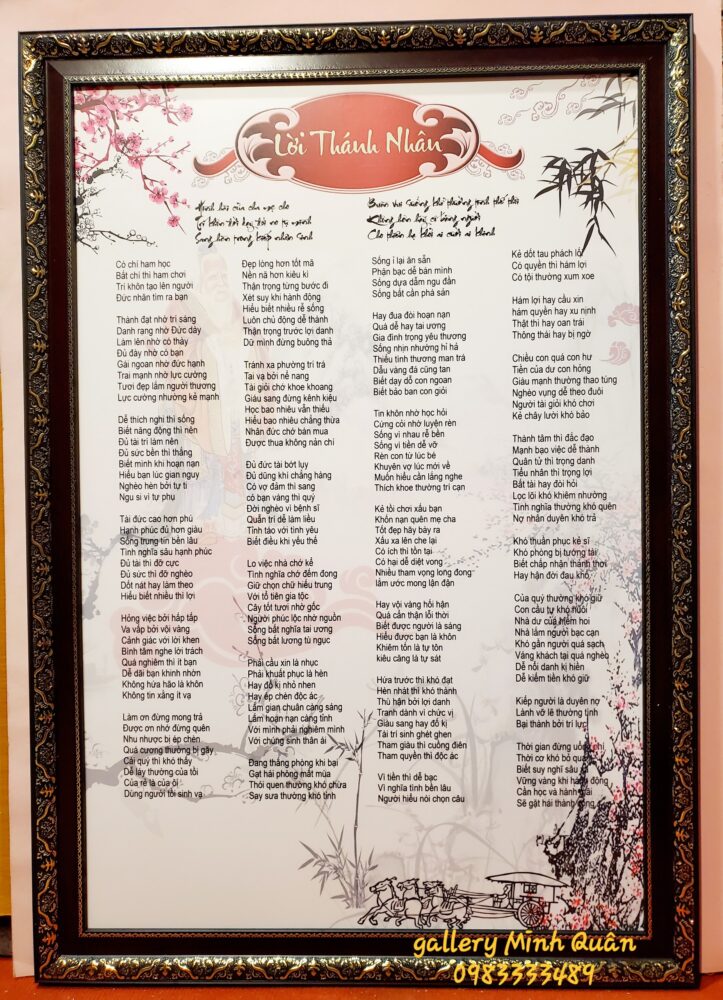 Lời Thánh Nhân
Hình hài của cha mẹ cho
Trí khôn trời dạy, đói no tự mình
Sang hèn trong kiếp nhân sinh
Buồn vui sướng khổ thường tình thế thôi
Không hơn hãy cố bằng người
Cho thiên hạ khỏi ai cười ai khinh
Có chí ham học
Bất chí thì ham chơi
Trí khôn tạo lên người
Đức nhân tìm ra bạn
Thành đạt nhờ trí sáng
Danh rạng nhờ Đức dày
Làm lên nhờ có thày
Đủ đày nhờ có bạn
Gái ngoan nhờ đức hạnh
Trai mạnh nhờ lực cường
Tươi đẹp lắm người thương
Lực cường nhường kẻ mạnh
Dễ thích nghi thì sống
Biết năng động thì nên
Đủ tài trí làm nên
Đủ sức bền thì thắng
Biết mình khi hoạn nạn
Hiểu bạn lúc gian nguy
Nghèo hèn bởi tự ti
Ngu si vì tự phụ
Tài đức cao hơn phú
Hạnh phúc đủ hơn giàu
Sống trung tín bền lâu
Tình nghĩa sâu hạnh phúc
Đủ tài thì đỡ cực
Đủ sức thì đỡ nghèo
Dốt nát hay làm theo
Hiểu biết nhiều thì lợi
Hỏng việc bởi hấp tấp
Va vấp bởi vội vàng
Cảnh giác với lời khen
Bình tâm nghe lời trách
Quá nghiêm thì ít bạn
Dễ dãi bạn khinh nhờn
Không hứa hão là khôn
Không tin xằng ít vạ
Làm ơn đừng mong trả
Được ơn nhớ đừng quên
Nhu nhược bị ép chèn
Quá cương thường bị gãy
Cái quý thì khó thấy
Dễ lấy thường của tồi
Của rẻ là của ôi
Dùng người tồi sinh vạ
Đẹp lòng hơn tốt mã
Nền nã hơn kiêu kì
Thận trọng từng bước đi
Xét suy khi hành động
Hiểu biết nhiều rễ sống
Luôn chủ động dễ thành
Thận trọng trước lợi danh
Dữ mình đừng buông thả
Tránh xa phường trí trá
Tai vạ bởi nể nang
Tài giỏi chớ khoe khoang
Giàu sang đừng kênh kiệu
Học bao nhiêu vẫn thiếu
Hiểu bao nhiêu chẳng thừa
Nhân đức chớ bán mua
Được thua không nản chí
Đủ đức tài bớt lụy
Đủ dũng khí chẳng hàng
Có vợ đảm thì sang
có bạn vàng thì quý
Đời nghèo vì bệnh sĩ
Quẫn trí dễ làm liều
Tỉnh táo với tình yêu
Biết điều khi yếu thế
Lo việc nhà chớ kể
Tình nghĩa chớ đếm đong
Giữ chọn chữ hiếu trung
Với tổ tiên gia tộc
Cây tốt tươi nhờ gốc
Người phúc lộc nhờ nguồn
Sống bất nghĩa tai ương
Sống bất lương tù ngục
Phải cầu xin là nhục
Phải khuất phục là hèn
Hay đố kị nhỏ nhen
Hay ép chèn độc ác
Lắm gian chuân càng sáng
Lắm hoạn nạn càng tinh
Với mình phải nghiêm minh
Với chúng sinh thân ái
Đang thắng phòng khi bại
Gạt hái phòng mất mùa
Thói quen thường khó chừa
Say sưa thường khó tỉnh
Sống ỉ lại ăn sẵn
Phận bạc dễ bán mình
Sống dựa dẫm ngu đần
Sống bất cần phá sản
Hay đua đòi hoạn nạn
Quá dễ hay tai ương
Gia đình trọng yêu thương
Sống nhịn nhường hỉ hả
Thiếu tình thương man trá
Dẫu vàng đá cũng tan
Biết dạy dỗ con ngoan
Biết bảo ban con giỏi
Tin khôn nhờ học hỏi
Cứng cỏi nhờ luyện rèn
Sống vì nhau rễ bền
Sống vì tiền dễ vỡ
Rèn con từ lúc bé
Khuyên vợ lúc mới về
Muốn hiểu cần lắng nghe
Thích khoe thường trí cạn
Kẻ tồi chơi xấu bạn
Khốn nạn quên mẹ cha
Tốt đẹp hãy bày ra
Xấu xa lên che lại
Có ích thì tồn tại
Có hại dễ diệt vong
Nhiều tham vọng long đong
lắm ước mong lận đận
Hay vội vàng hối hận
Quá cẩn thận lỗi thời
Biết được người là sáng
Hiểu được bạn là khôn
Khiêm tốn là tự tôn
kiêu căng là tự sát
Hứa trước thì khó đạt
Hèn nhát thì khó thành
Thù hận bởi lợi danh
Tranh dành vì chức vị
Giàu sang hay đố kị
Tài trí sinh ghét ghen
Tham giàu thì cuồng điên
Tham quyền thì độc ác
Vì tiền thì dễ bạc
Vì nghĩa tình bền lâu
Người hiểu nói chọn câu
Kẻ dốt tau phách lố
Có quyền thì hám lợi
Có tội thường xum xoe
Hám lợi hay cầu xin
hám quyền hay xu nịnh
Thật thì hay oan trái
Thông thái hay bị ngờ
Chiều con quá con hư
Tiền của dư con hỏng
Giàu mạnh thường thao túng
Nghèo vụng dễ theo đuôi
Người tài giỏi khó chơi
Kẻ chây lười khó bảo
Thành tâm thì đắc đạo
Mạnh bạo việc dễ thành
Quân tử thì trọng danh
Tiểu nhân thì trọng lợi
Bất tài hay đòi hỏi
Lọc lõi khó khiêm nhường
Tình nghĩa thường khó quên
Nợ nhân duyên khó trả
Khó thuần phục kẻ sĩ
Khó phòng bị tướng tài
Biết chấp nhận thành thơi
Hay hận đời đau khổ
Của quý thường khó giữ
Con cầu tự khó nuôi
Nhà dư của hiếm hoi
Nhà lắm người bạc cạn
Khó gần người quá sạch
Vắng khách tại quá nghèo
Dễ nổi danh kị hiền
Dễ kiếm tiền khó giữ
Kiếp người là duyên nợ
Lành vỡ lẽ thường tình
Bại thành bởi trí lực
Thời gian đừng uổng phí
Thời cơ khó bỏ qua
Biết suy nghĩ sâu
Vững vàng khi hành động
Cần học và hành
Sẽ gặt hái thành công
gallery Minh Quân
0983333489